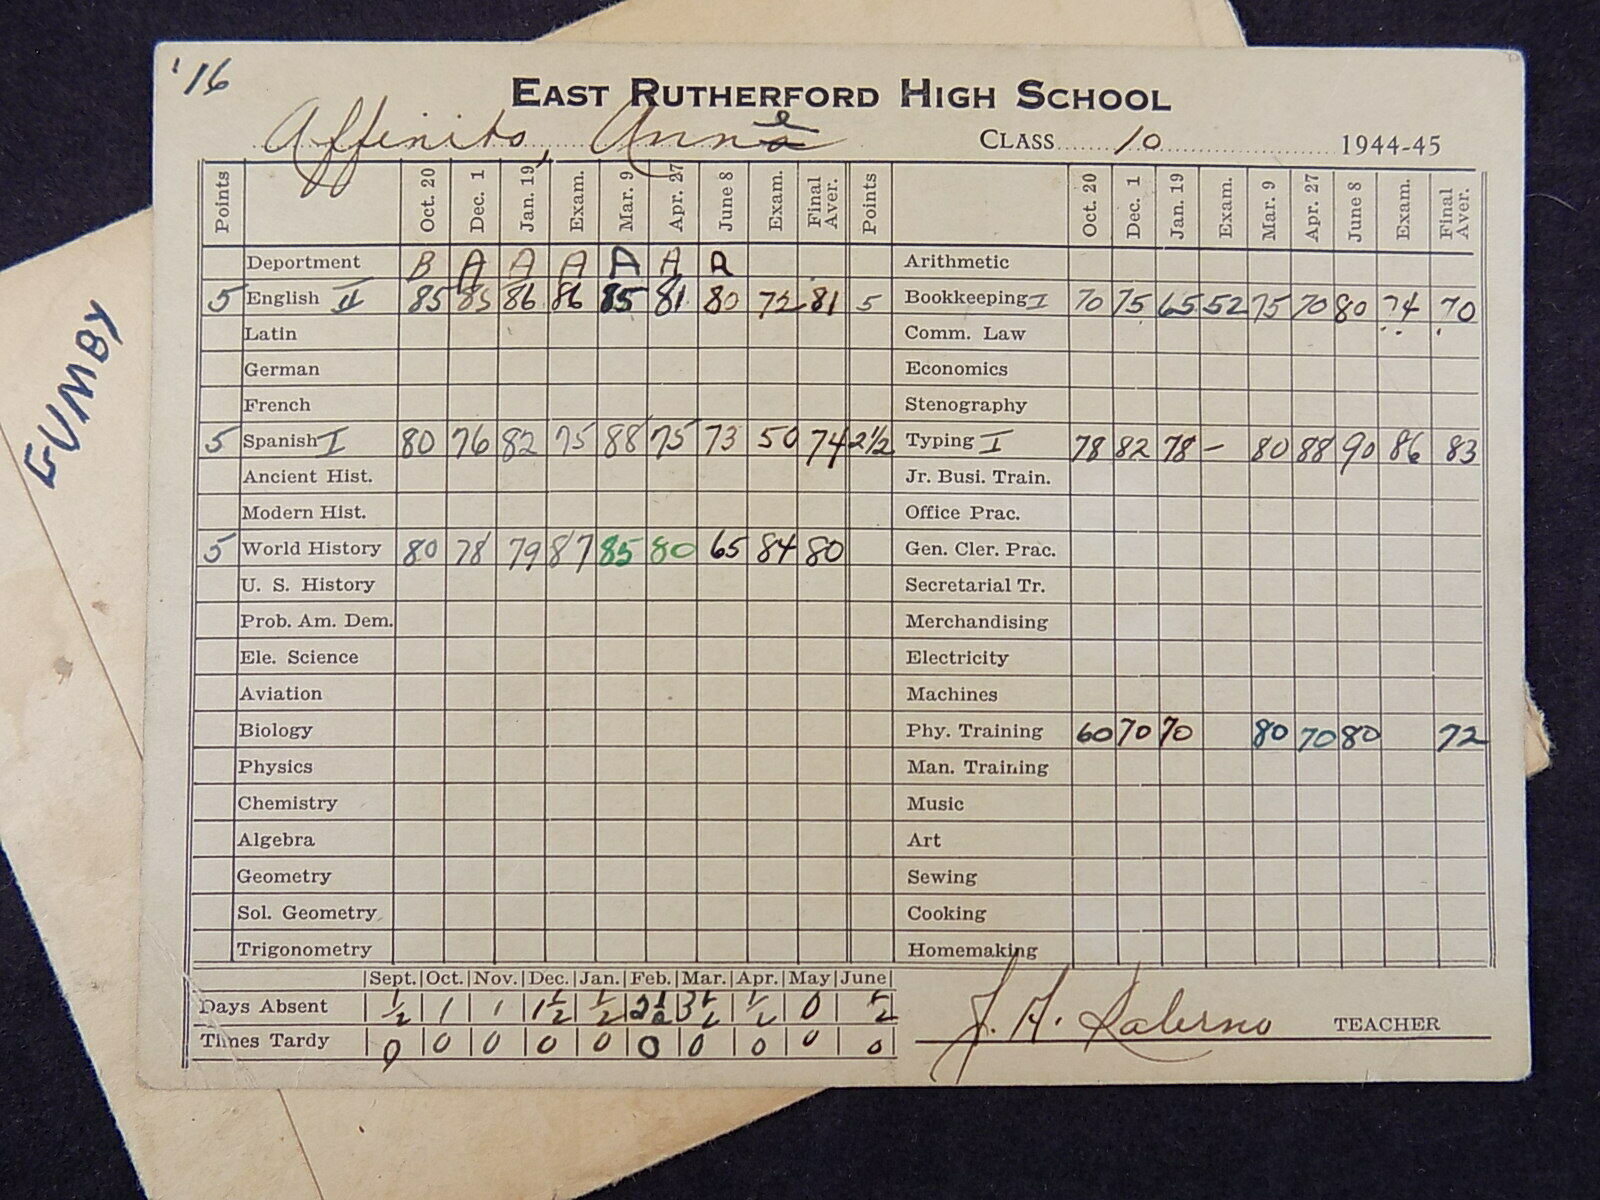 '16
EAST RUTHERFORD HIGH SCHOOL
Affinito, Anne CLASS 10 1944-45
Points Oct. 20 Dec. 1 Jan. 19 Exam. Mar. 9 Apr. 27 June 8 Exam. Final Aver. Points Oct. 20 Dec. 1 Jan. 19 Exam. Mar. 9 Apr. 27 June 8 Exam. Final Aver.
Deportment B A A A A A A Arithmetic
5 English II 85 85 86 86 85 81 80 72 81 5 Bookkeeping I 70 75 65 52 75 70 80 74 70
Latin Comm. Law
German Economics
French Stenography
5 Spanish I 80 76 82 75 88 75 73 50 74 2 1/2 Typing I 78 82 78 - 80 88 90 86 83
Ancient Hist. Jr. Busi. Train.
Modern Hist. Office Prac.
5 World History 80 78 79 87 85 80 65 84 80 Gen. Cler. Prac.
U. S. History Secretarial Tr.
Prob. Am. Dem. Merchandising
Ele. Science Electricity
Aviation Machines
Biology Phy. Training 60 70 70 80 70 80 72
Physics Man. Training
Chemistry Music
Algebra Art
Geometry Sewing
Sol. Geometry Cooking
Trigonometry Homemaking
Sept. Oct. Nov. Dec. Jan. Feb. Mar. Apr. May June
Days Absent 1/2 1 1 1 1/2 1/2 2 1/2 3 1/2 1/2 0 1/2
Times Tardy 0 0 0 0 0 0 0 0 0 0
J. A. Salerno TEACHER
GUMBY